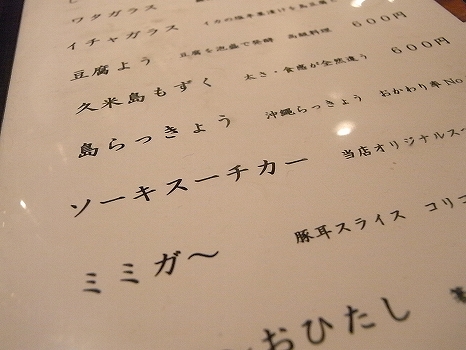 ワタガラス
イチャガラス
豆腐よう 豆腐を泡盛で発酵 高級料理 600円
久米島もずく 太さ・食感が全然違う 600円
島らっきょう 沖縄らっきょう おかわり率No
ソーキスーチカー 当店オリジナルスー
ミミガ〜 豚耳スライス コリコ
おひたし